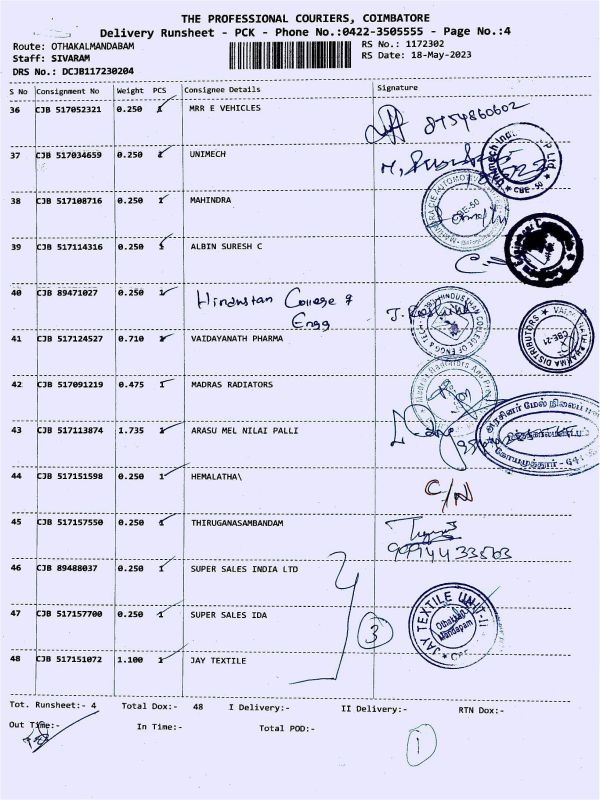 THE PROFESSIONAL COURIERS, COIMBATORE
Delivery Runsheet - PCK - Phone No.:0422-3505555 - Page No.:4
Route: OTHAKALMANDABAM RS No.: 1172302
Staff: SIVARAM RS Date: 18-May-2023
DRS No.: DCJB117230204
S No Consignment No Weight PCS Consignee Details Signature
36 CJB 517052321 0.250 1 MRR E VEHICLES
8754860602
37 CJB 517034659 0.250 1 UNIMECH
CBE-50
38 CJB 517108716 0.250 1 MAHINDRA
CBE-50
39 CJB 517114316 0.250 1 ALBIN SURESH C
40 CJB 89471027 0.250 1 Hindustan College of
Engg
41 CJB 517124527 0.710 1 VAIDAYANATH PHARMA
DISTRIBUTORS
CBE-21
42 CJB 517091219 0.475 1 MADRAS RADIATORS
43 CJB 517113874 1.735 1 ARASU MEL NILAI PALLI
44 CJB 517151598 0.250 1 HEMALATHA\ C/N
45 CJB 517157550 0.250 1 THIRUGANASAMBANDAM
46 CJB 89488037 0.250 1 SUPER SALES INDIA LTD
47 CJB 517157700 0.250 1 SUPER SALES IDA
3
JAY TEXTILE UNIT-II
Othakkal
Mandapam
48 CJB 517151072 1.100 1 JAY TEXTILE
Tot. Runsheet:- 4 Total Dox:- 48 I Delivery:- II Delivery:- RTN Dox:-
Out Time:- In Time:- Total POD:-
1